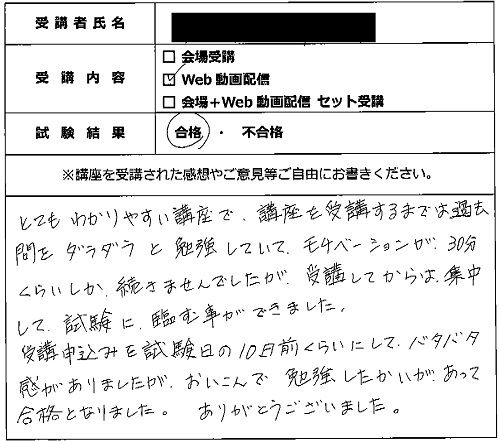 受講者氏名
受講内容
□ 会場受講
☑ Web動画配信
□ 会場＋Web動画配信 セット受講
試験結果
合格 ・ 不合格
※講座を受講された感想やご意見等ご自由にお書きください。
とてもわかりやすい講座で、講座を受講するまでは過去
問を ダラダラ と 勉強していて、モチベーションが 30分
くらいしか、続きませんでしたが、受講してからは、集中
して、試験に、臨む事ができました。
受講申込みを試験日の10日前くらいにして、バタバタ
感がありましたが、おいこんで 勉強したかいが、あって
合格となりました。 ありがとうございました。